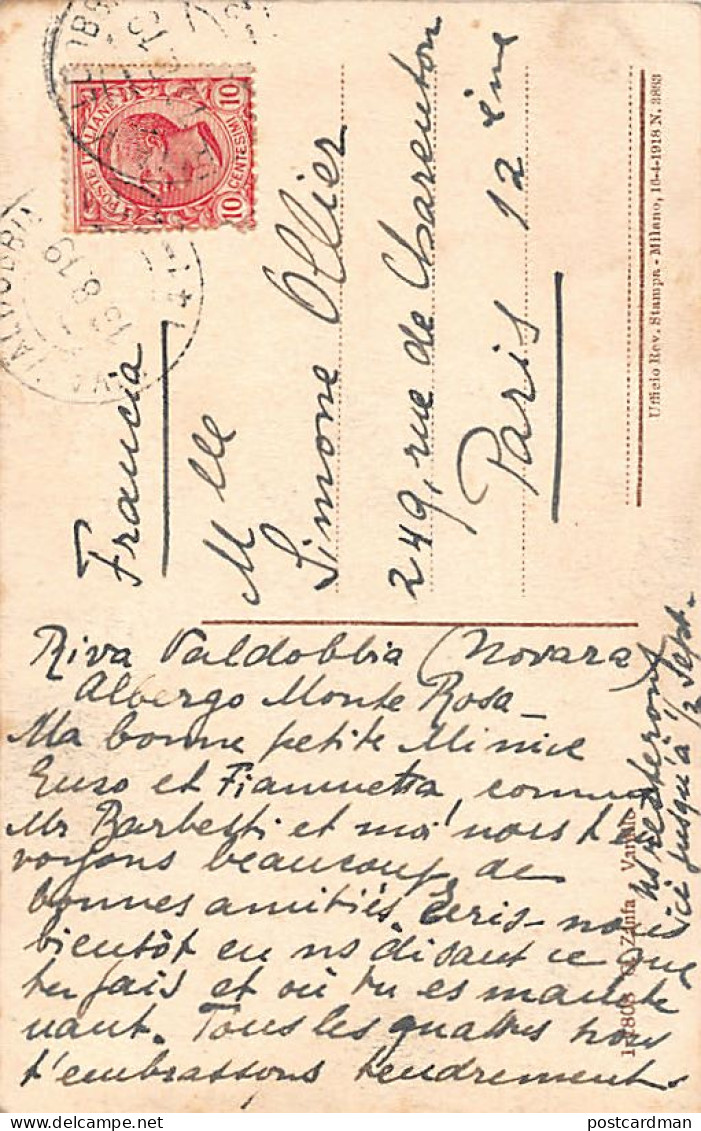 Riva Valdobbia (Novara)
Albergo Monte Rosa
Ma bonne petite Minie
Enso et Fiammetta, comme
Mr Barbetti et moi nous t'en
voyons beaucoup de
bonnes amitiés. Ecris-nous
bientôt en ns disant ce que
tu fais et où tu es mainte
nant. Tous les quatres nous
t'embrassons tendrement
ns resterons
ici jusqu'à Sept.
Francia
Mlle
Simone Ollier
249, rue de Charenton
Paris 12ème
POSTE ITALIANE
10 CENTESIMI 10
VALDOBBIA
13.8.19
Ufficio Rev. Stampa - Milano, 16-4-1918 N. 3893
Zanfa
postcardman